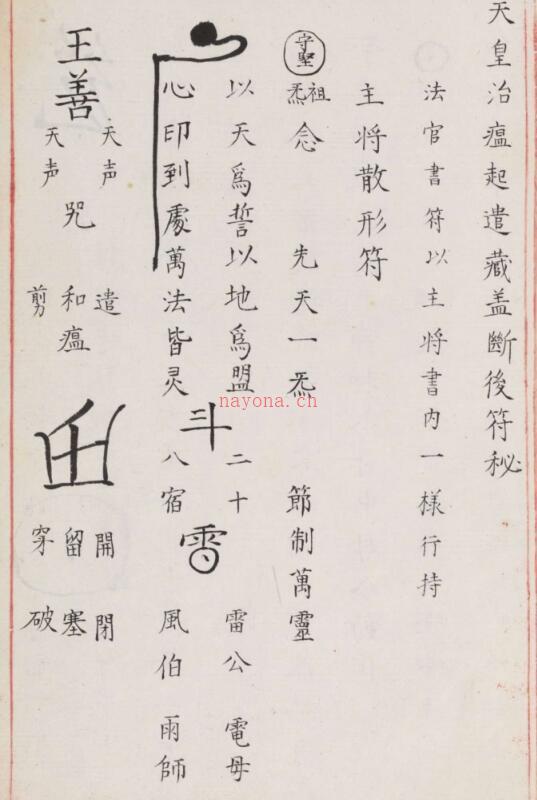 天皇治瘟起遣藏盖斷後符秘
法官書符以主將書内一樣行持
主將散形符
守堅
祖炁念 先天一炁 節制萬靈
以天爲誓以地爲盟 二十 雷公 電母
心印到處萬法皆灵 斗 八宿 風伯 雨師
天声 遣 開 閉
王善 咒 和瘟 留 塞
天声 剪 穿 破
nayona.ch